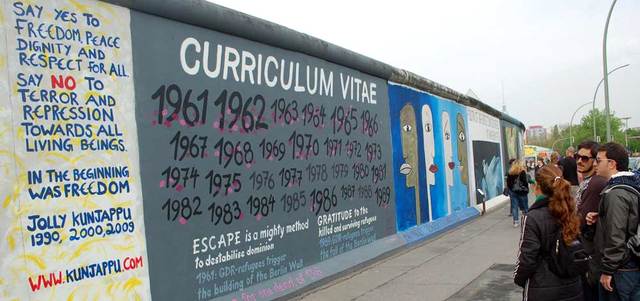 SAY YES TO
FREEDOM, PEACE
DIGNITY AND
RESPECT FOR ALL.
SAY NO TO
TERROR AND
REPRESSION
TOWARDS ALL
LIVING BEINGS.
IN THE BEGINNING
WAS FREEDOM
JOLLY KUNJAPPU
1990, 2000, 2009
WWW.KUNJAPPU.COM
CURRICULUM VITAE
1961 1962 1963 1964 1965 1966
1967 1968 1969 1970 1971 1972 1973
1974 1975 1976 1977 1978 1979 1980 1981
1982 1983 1984 1985 1986 1987 1988 1989
ESCAPE is a mighty method
to destabilise dominion
1961: GDR-refugees trigger
the building of the Berlin Wall
GRATITUDE to the
killed and surviving refugees
1989: GDR-refugees trigger
the fall of the Berlin Wall